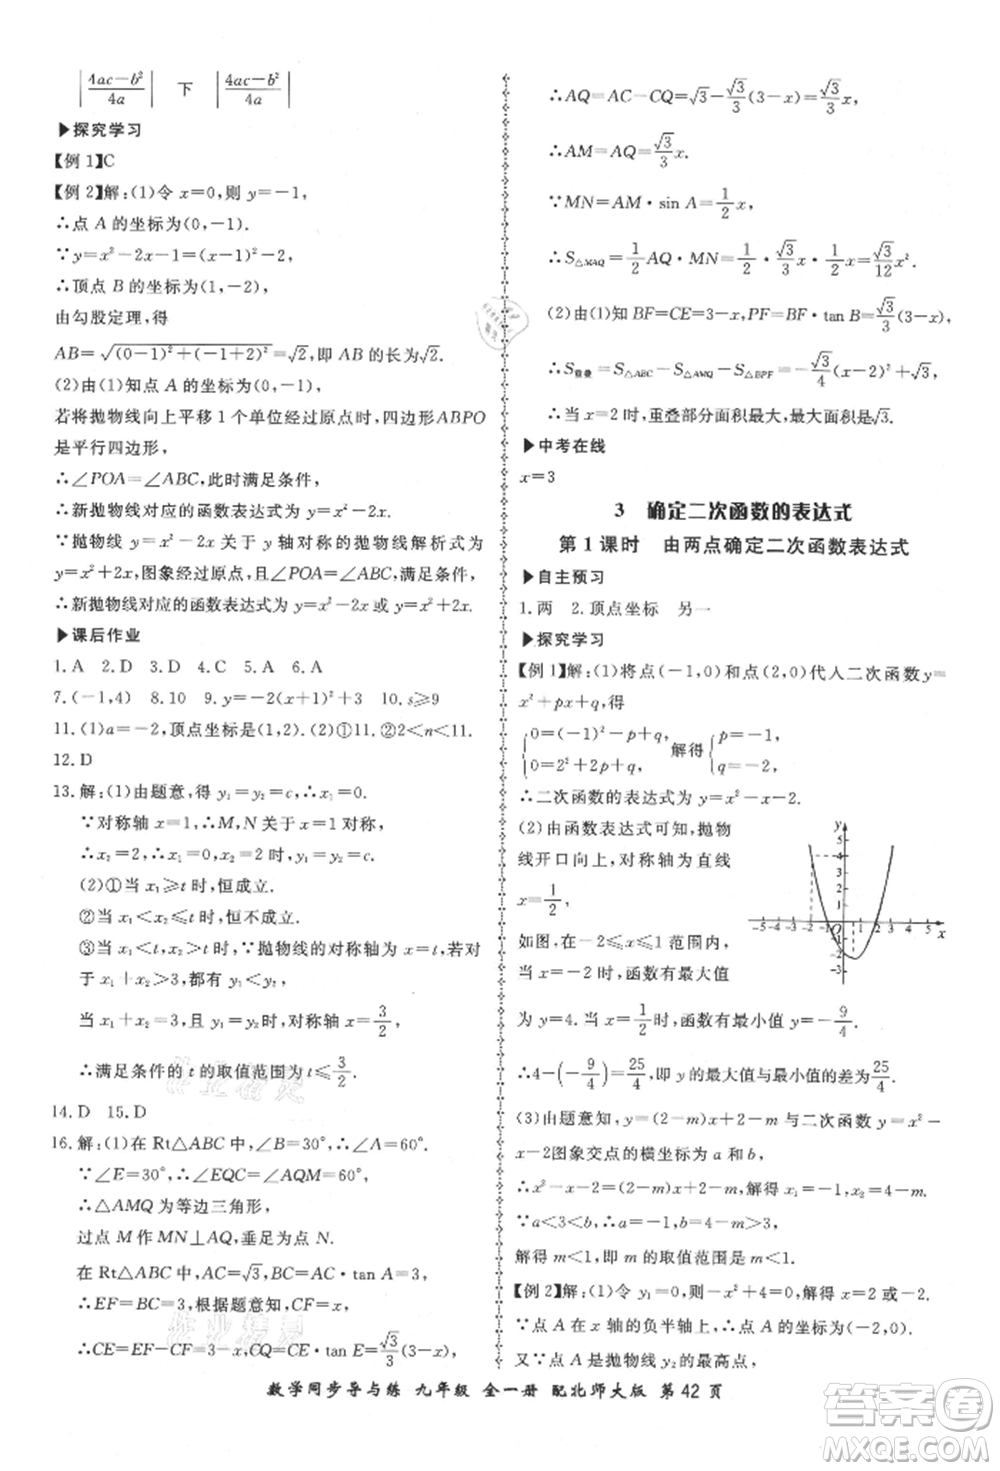 |4ac-b²/4a| 下 |4ac-b²/4a|
▶探究学习
【例1】C
【例2】解:(1)令 x=0,则 y=-1,
∴点 A 的坐标为(0,-1).
∵y=x²-2x-1=(x-1)²-2,
∴顶点 B 的坐标为(1,-2),
由勾股定理,得
AB=√((0-1)²+(-1+2)²)=√2,即 AB 的长为√2.
(2)由(1)知点 A 的坐标为(0,-1),
若将抛物线向上平移 1 个单位经过原点时,四边形 ABPO
是平行四边形,
∴∠POA=∠ABC,此时满足条件,
∴新抛物线对应的函数表达式为 y=x²-2x.
∵抛物线 y=x²-2x 关于 y 轴对称的抛物线解析式为
y=x²+2x,图象经过原点,且满足条件,
∴新抛物线对应的函数表达式为 y=x²-2x 或 y=x²+2x.
▶课后作业
1.A 2.D 3.D 4.C 5.A 6.A
7.(-1,4) 8.10 9.y=-2(x+1)²+3 10.s≥9
11.(1)a=-2,顶点坐标是(1,2).(2)①11.②2<n<11.
12.D
13.解:(1)由题意,得 y₁=y₂=c,∴x₁=0.
∵对称轴 x=1,∴M,N 关于 x=1 对称,
∴x₂=2,∴x₁=0,x₂=2 时,y₁=y₂=c.
(2)①当 x₁≥t 时,恒成立.
②当 x₁<x₂≤t 时,恒不成立.
③当 x₁<t<x₂ 时,∵抛物线的对称轴为 x=t,若对
于 x₁+x₂>3,都有 y₁<y₂,
当 x₁+x₂=3,且 y₁=y₂ 时,对称轴 x=3/2,
∴满足条件的 t 的取值范围为 t≤3/2.
14.D 15.D
16.解:(1)在 Rt△ABC 中,∠B=30°,∴∠A=60°.
∵∠E=30°,∴∠EQC=∠AQM=60°,
∴△AMQ 为等边三角形,
过点 M 作 MN⊥AQ,垂足为点 N.
在 Rt△ABC 中,∵BC=3,AC=BC·tan A=√3,
∴EF=BC=3,根据题意知,CF=x,
∴CE=EF-CF=3-x,CQ=CE·tan E=√3/3(3-x),
∴AQ=AC-CQ=√3-√3/3(3-x)=√3/3x,
∴AM=AQ=√3/3x,
∵MN=AM·sin A=1/2x,
∴S△MAQ=1/2AQ·MN=1/2·√3/3x·1/2x=√3/12x².
(2)由(1)知 BF=CE=3-x,PF=BF·tan B=√3/3(3-x),
∴S重叠=S△ABC-S△AMQ-S△BPF=-√3/4(x-2)²+√3,
∴当 x=2 时,重叠部分面积最大,最大面积是√3.
▶中考在线
x=3
3 确定二次函数的表达式
第 1 课时 由两点确定二次函数表达式
▶自主预习
1.两 2.顶点坐标 另一
▶探究学习
【例1】解:(1)将点(-1,0)和点(2,0)代人二次函数 y=
x²+px+q,得
{0=(-1)²-p+q, 0=2²+2p+q, 解得{p=-1, q=-2.
∴二次函数的表达式为 y=x²-x-2.
(2)由函数表达式可知,抛物
线开口向上,对称轴为直线
x=1/2,
如图,在-2≤x≤1 范围内,
当 x=-2 时,函数有最大值
为 y=4.当 x=1/2 时,函数有最小值 y=-9/4.
∴4-(-9/4)=25/4,即 y 的最大值与最小值的差为25/4.
(3)由题意知,y=(2-m)x+2-m 与二次函数 y=x²-x
-2图象交点的横坐标为 a 和 b,
∴x²-x-2=(2-m)x+2-m,解得 x₁=-1,x₂=4-m.
∵a<3<b,∴a=-1,b=4-m>3,
解得 m<1,即 m 的取值范围是 m<1.
【例2】解:(1)令 y₁=0,则-x²+4=0,解得 x=2或-2.
∵点 A 在 x 的负半轴上,∴点 A 的坐标为(-2,0),
又∵点 A 是抛物线 y₂ 的最高点,
数学同步导与练 九年级 全一册 配北师大版 第 42 页
答案圈
MXQE.COM